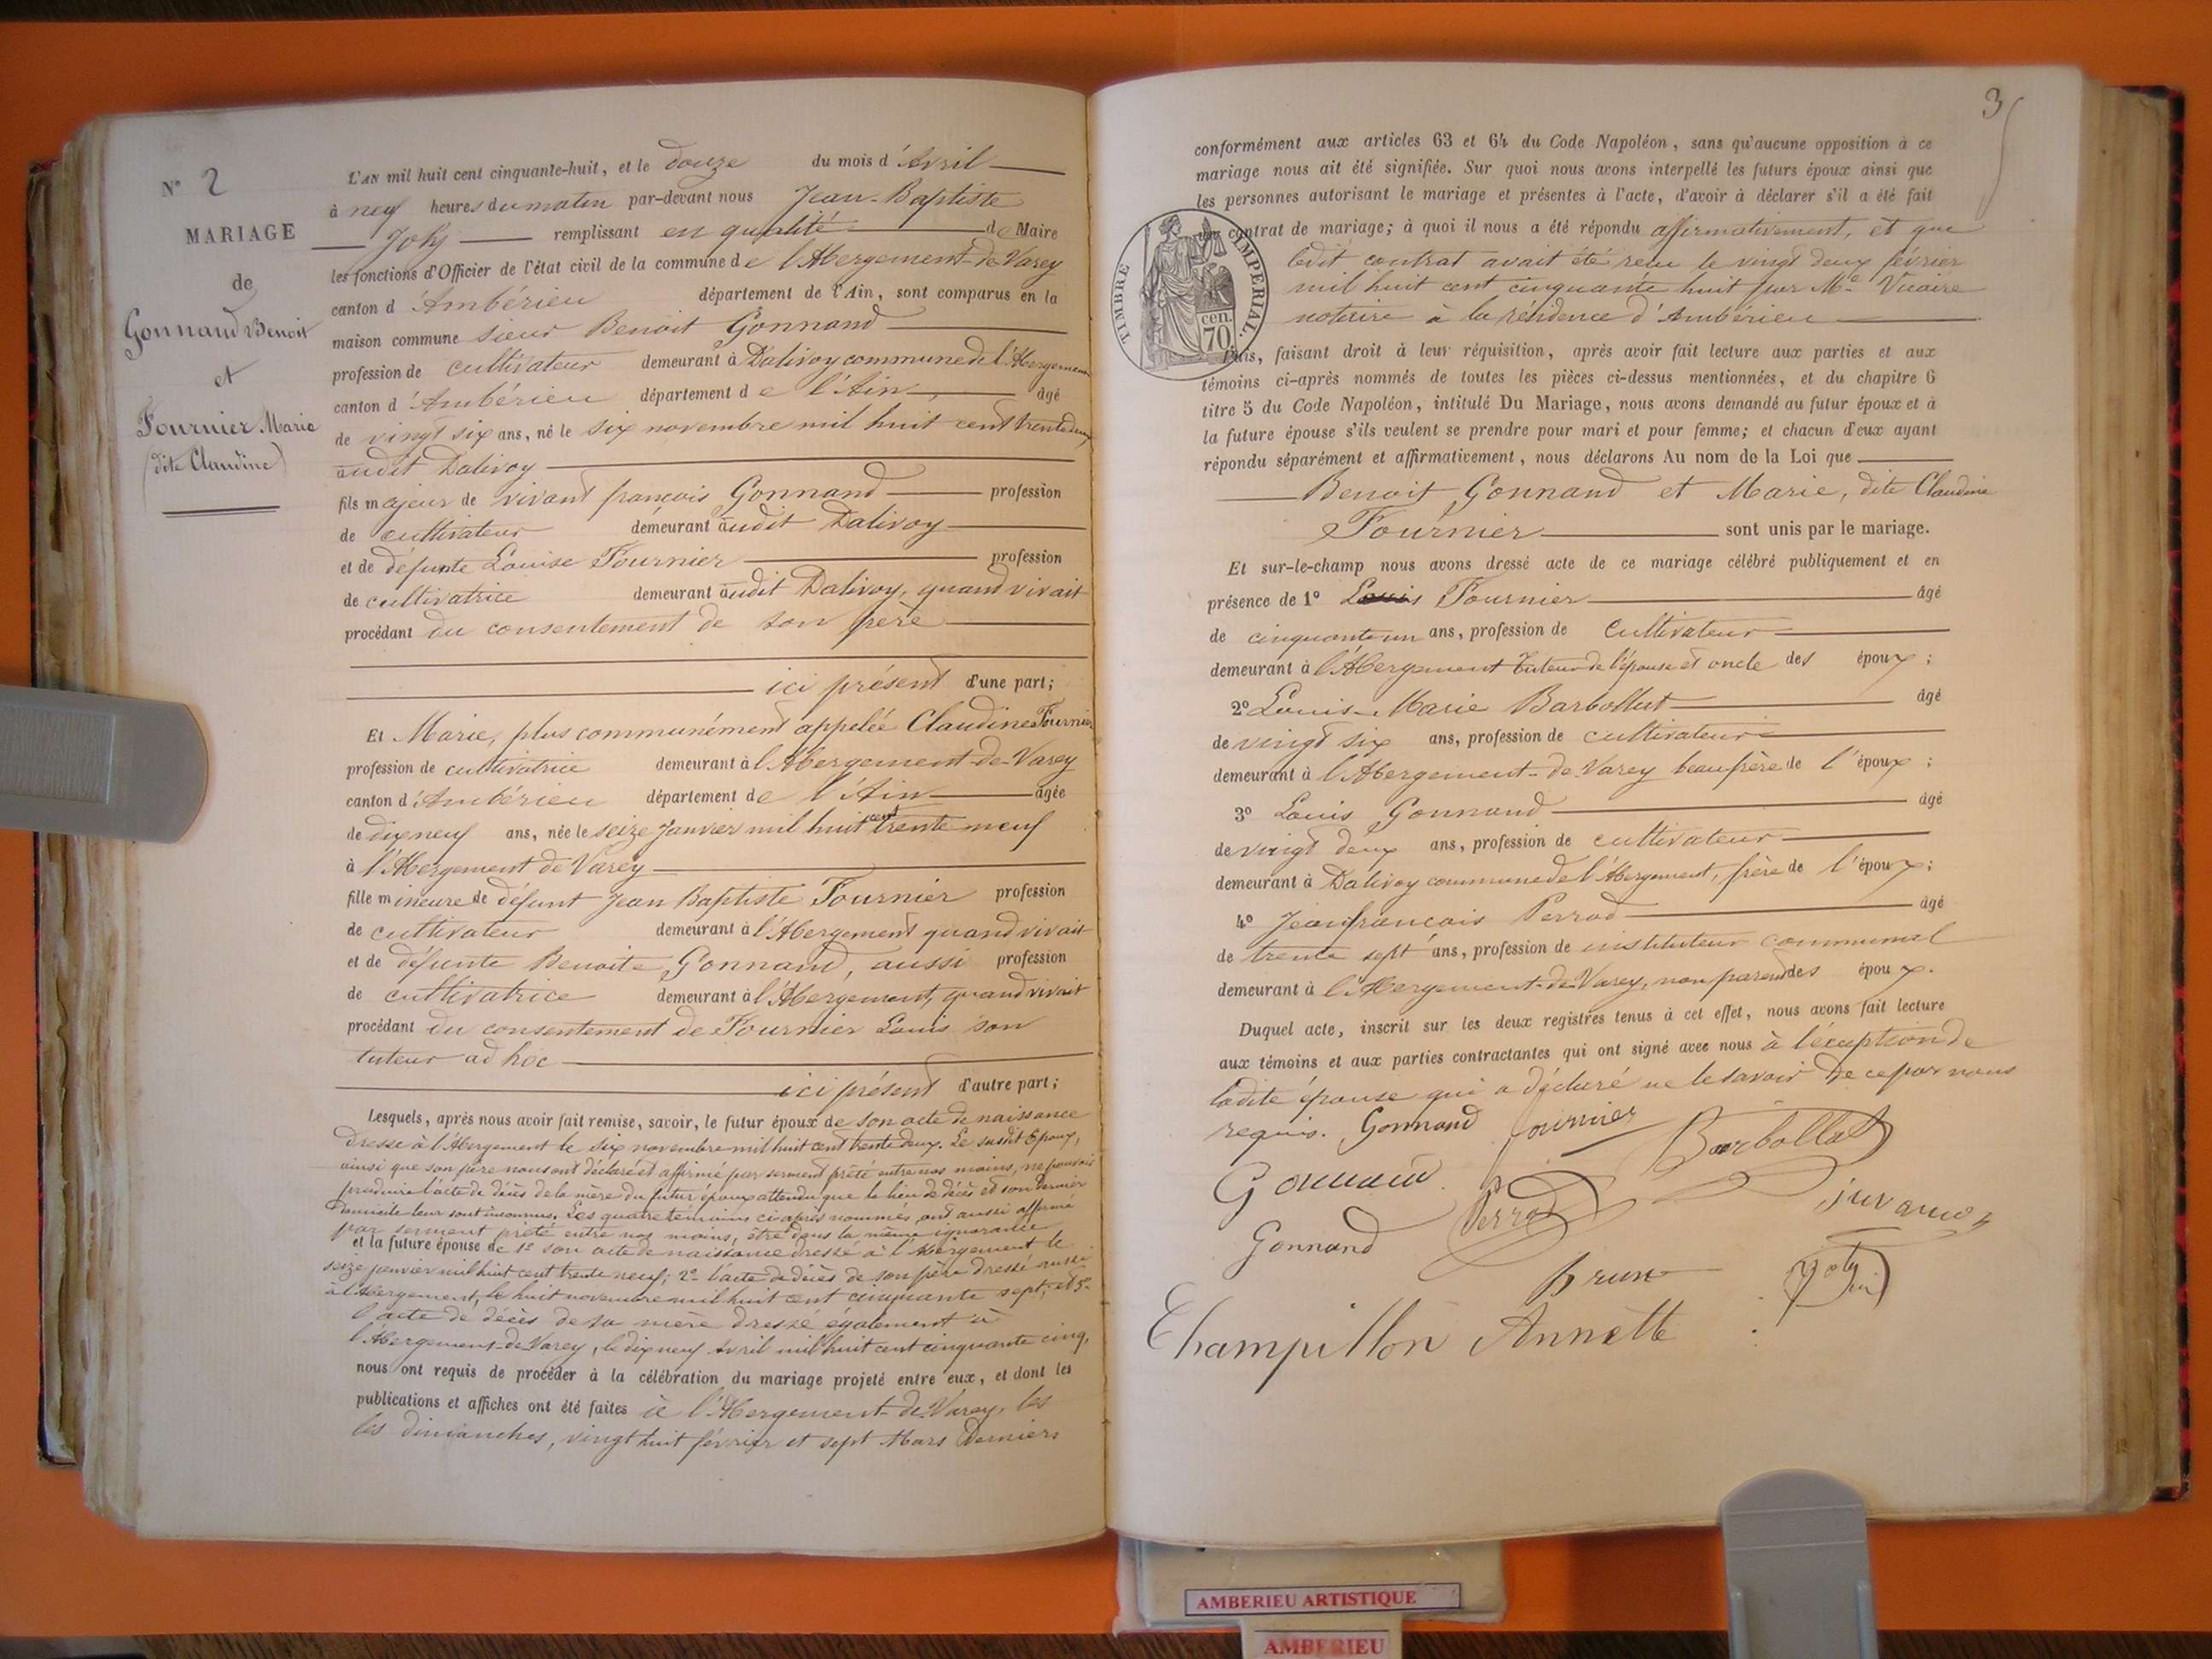 N° 2
MARIAGE
de
Gonnand Benoit
et
Fournier Marie
(dite Claudine)
L'AN mil huit cent cinquante-huit, et le douze du mois d'Avril
à neuf heures du matin par-devant nous Jean-Baptiste
Joly remplissant en qualité de Maire
les fonctions d'Officier de l'état civil de la commune de l'Abergement-de-Varey
canton d'Ambérieu département de l'Ain, sont comparus en la
maison commune sieur Benoit Gonnand
profession de cultivateur demeurant à Dalivoy commune de l'Abergement
canton d'Ambérieu département de l'Ain, âgé
de vingt six ans, né le six novembre mil huit cent trente deux
audit Dalivoy
fils majeur de vivant françois Gonnand profession
de cultivateur demeurant audit Dalivoy
et de défunte Louise Fournier profession
de cultivatrice demeurant audit Dalivoy, quand vivait
procédant du consentement de son père
ici présent d'une part;
Et Marie, plus communément appelée Claudine Fournier
profession de cultivatrice demeurant à l'Abergement-de-Varey
canton d'Ambérieu département de l'Ain âgée
de dix neuf ans, née le seize Janvier mil huit cent trente neuf
à l'Abergement de Varey
fille mineure de défunt Jean Baptiste Fournier profession
de cultivateur demeurant à l'Abergement quand vivait
et de défunte Benoite Gonnand, aussi profession
de cultivatrice demeurant à l'Abergement, quand vivait
procédant du consentement de Fournier Louis son
tuteur ad hoc
ici présent d'autre part;
Lesquels, après nous avoir fait remise, savoir, le futur époux de son acte de naissance
dressé à l'Abergement le six novembre mil huit cent trente deux. Le susdit Epoux,
ainsi que son père nous ont déclaré et affirmé par serment prêté entre nos mains, ne pouvoir
produire l'acte de décès de la mère du futur époux attendu que le lieu de décès et son dernier
domicile leur sont inconnus. Les quatre témoins ci-après nommés, ont aussi affirmé
par serment prêté entre nos mains, être dans la même ignorance
et la future épouse de 1° son acte de naissance dressé à l'Abergement le
seize janvier mil huit cent trente neuf; 2° l'acte de décès de son père dressé aussi
à l'Abergement, le huit novembre mil huit cent cinquante sept; et 3°
l'acte de décès de sa mère dressé également à
l'Abergement-de-Varey, le dix neuf Avril mil huit cent cinquante cinq,
nous ont requis de procéder à la célébration du mariage projeté entre eux, et dont les
publications et affiches ont été faites à l'Abergement-de-Varey, les
les dimanches, vingt huit février et sept Mars Derniers
3
conformément aux articles 63 et 64 du Code Napoléon, sans qu'aucune opposition à ce
mariage nous ait été signifiée. Sur quoi nous avons interpellé les futurs époux ainsi que
les personnes autorisant le mariage et présentes à l'acte, d'avoir à déclarer s'il a été fait
un contrat de mariage; à quoi il nous a été répondu affirmativement, et que
ledit contrat avait été reçu le vingt deux février
mil huit cent cinquante huit par Me Vicaire
notaire à la résidence d'Ambérieu
TIMBRE IMPERIAL.
cen. 70
Puis, faisant droit à leur réquisition, après avoir fait lecture aux parties et aux
témoins ci-après nommés de toutes les pièces ci-dessus mentionnées, et du chapitre 6
titre 5 du Code Napoléon, intitulé Du Mariage, nous avons demandé au futur époux et à
la future épouse s'ils veulent se prendre pour mari et pour femme; et chacun d'eux ayant
répondu séparément et affirmativement, nous déclarons Au nom de la Loi que
Benoit Gonnand et Marie, dite Claudine
Fournier sont unis par le mariage.
Et sur-le-champ nous avons dressé acte de ce mariage célébré publiquement et en
présence de 1° Louis Fournier âgé
de cinquante un ans, profession de cultivateur
demeurant à l'Abergement tuteur de l'épouse et oncle des époux;
2° Louis-Marie Barbollat âgé
de vingt six ans, profession de cultivateur
demeurant à l'Abergement-de-Varey beau frère de l'époux;
3° Louis Gonnand âgé
de vingt deux ans, profession de cultivateur
demeurant à Dalivoy commune de l'Abergement, frère de l'époux;
4° Jean françois Perrod âgé
de trente sept ans, profession de instituteur communal
demeurant à l'Abergement-de-Varey, non parent des époux.
Duquel acte, inscrit sur les deux registres tenus à cet effet, nous avons fait lecture
aux témoins et aux parties contractantes qui ont signé avec nous à l'éxception de
ladite épouse qui a déclaré ne le savoir de ce par nous
requis. Gonnand fournier
Barbollat
Gonnand Perrod
Gonnand
brun Joly
Champillon Annette
AMBERIEU ARTISTIQUE
AMBERIEU